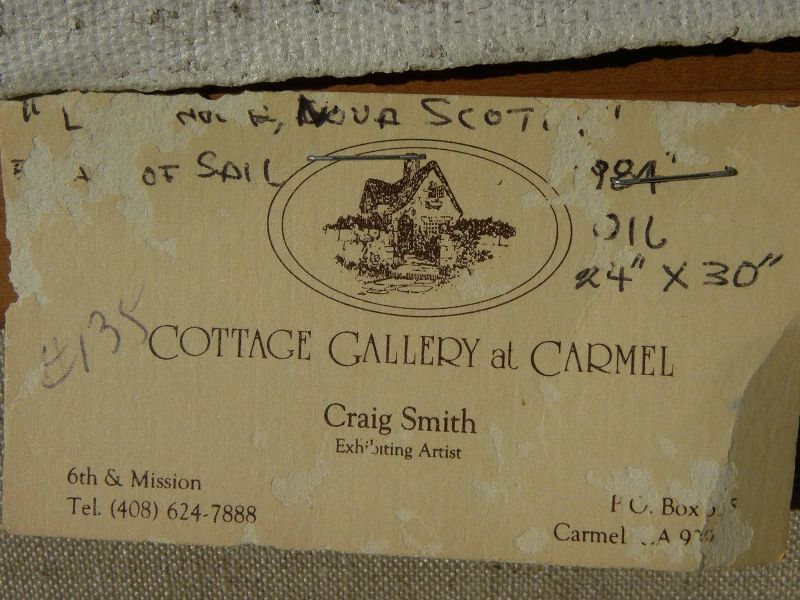 NOVA SCOT
OF SAIL
OIL
24" X 30"
#135
COTTAGE GALLERY at CARMEL
Craig Smith
Exhibiting Artist
6th & Mission
Tel. (408) 624-7888
P.O. Box
Carmel CA